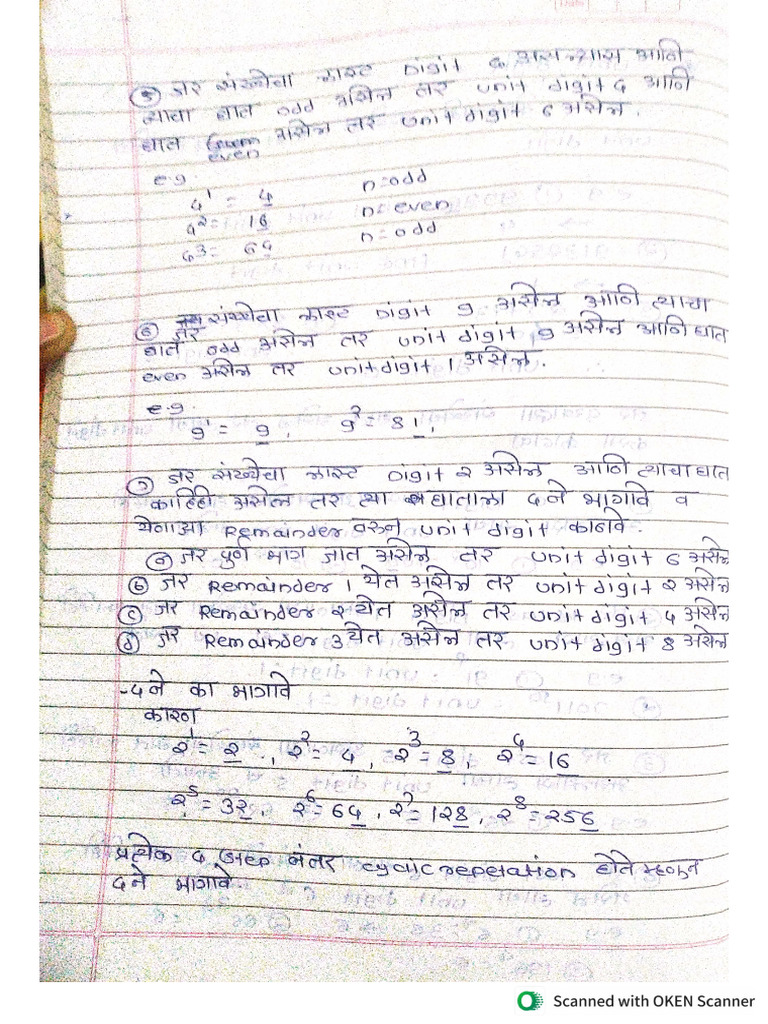 ⑤ जर संख्येचा लास्ट Digit ४ असल्यास आणि
त्याचा घात odd असेल तर unit digit ४ आणि
घात even असेल तर unit digit 6 असेल.
e.g.
४¹ = ४ n=odd
४² = 16 n=even
४³ = 6४ n=odd
⑥ जर संख्येचा लास्ट Digit 9 असेल आणि त्याचा
घात odd असेल तर unit digit 9 असेल आणि घात
even असेल तर unit digit 1 असेल.
e.g.
9¹ = 9, 9² = 81,
⑦ जर संख्येचा लास्ट Digit २ असेल आणि त्याचा घात
काहिही असेल तर त्या घाताला ४ने भागावे व
येणाऱ्या Remainder वरुन unit digit काढावे.
ⓐ जर पुर्ण भाग जात असेल तर unit digit 6 असेल
ⓑ जर Remainder 1 येत असेल तर unit digit २ असेल
ⓒ जर Remainder २ येत असेल तर unit digit 4 असेल
ⓓ जर Remainder 3 येत असेल तर unit digit 8 असेल
-४ने का भागावे
कारण
२¹ = २, २² = 4, २³ = 8, २⁴ = 16
२⁵ = 3२, २⁶ = 64, २⁷ = 128, २⁸ = 256
प्रत्येक ४ step नंतर cyclic repetation होते म्हणून
४ने भागावे.
Scanned with OKEN Scanner